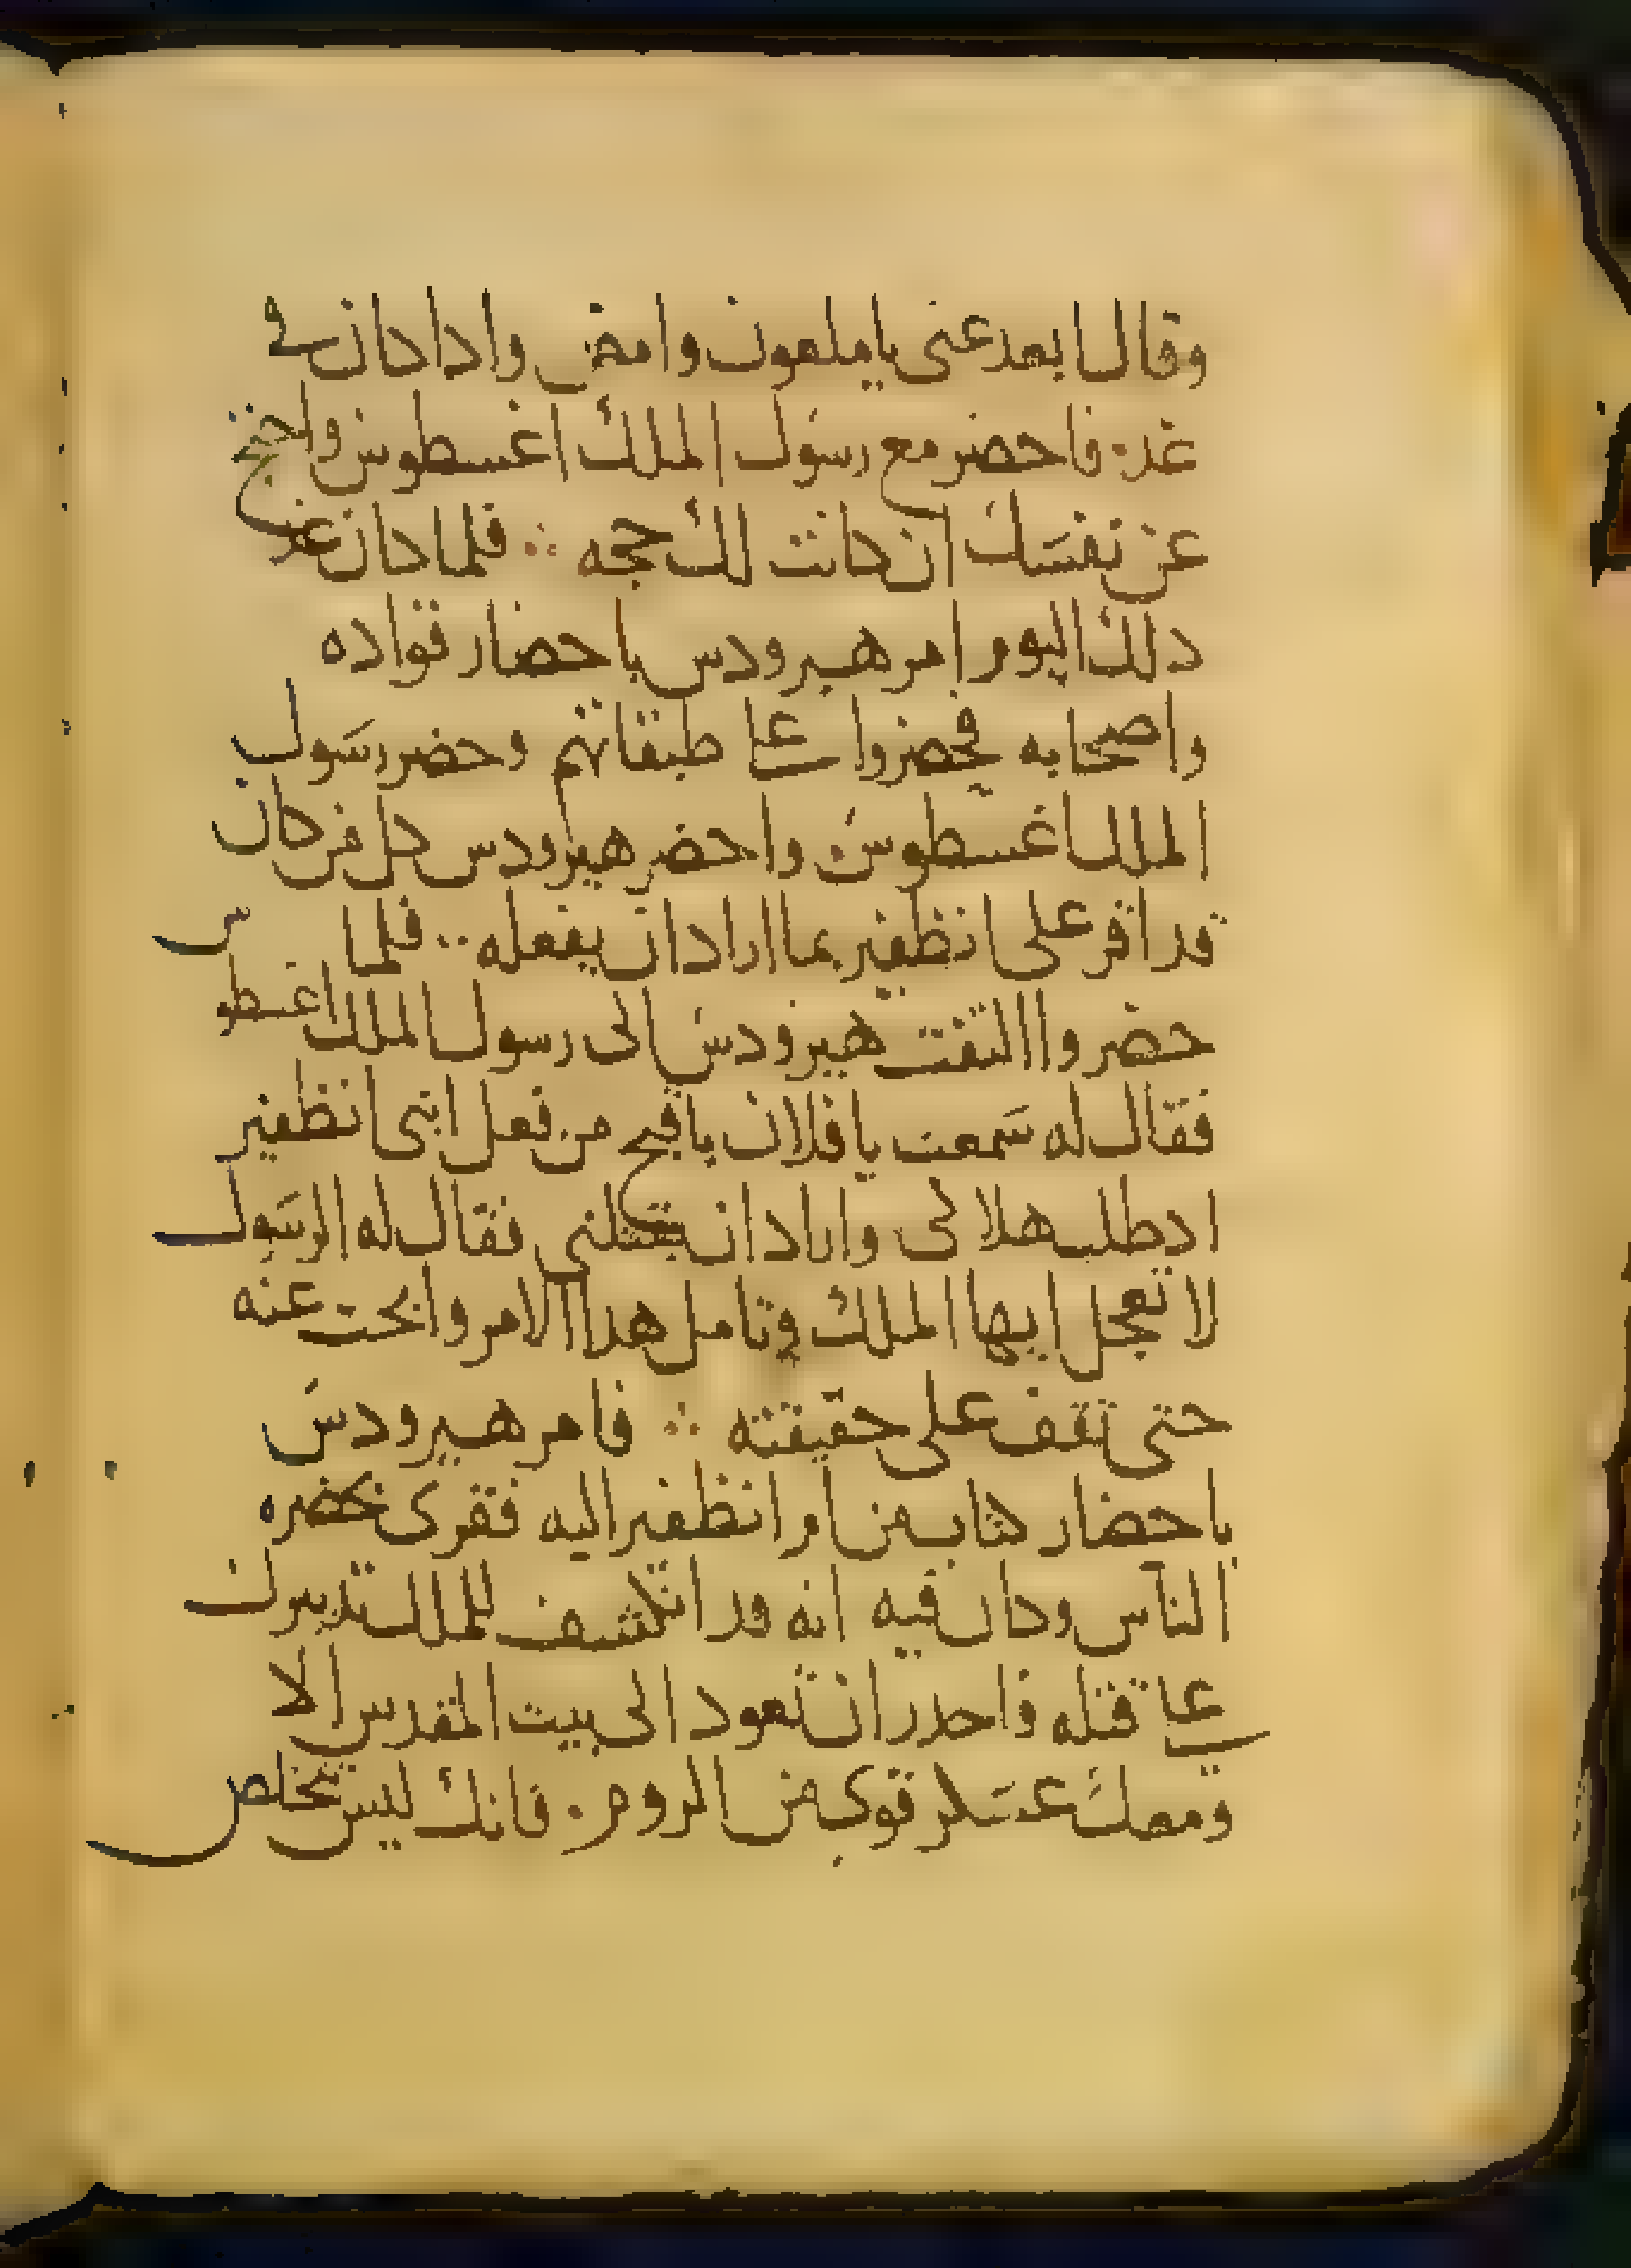 وقال ابعد عنى يا ملعون وامض واداكان فى
غد فاحضر مع رسول الملك اغسطوس واحتج
عن نفسك ان كانت لك حجه ∴ فلما كان غد
دلك اليوم امر هيرودس باحضار قواده
واصحابه فحضروا على طبقاتهم وحضر رسول
الملك اغسطوس واحضر هيرودس كل من كان
قد اقر على انظفير بما اراد ان يفعله .. فلما
حضروا التفت هيرودس الى رسول الملك اغسطوس
فقال له سمعت يا فلان باقبح من فعل ابنى انظفير
اد طلب هلاكى واراد ان يقتلنى فقال له الرسول
لا تعجل ايها الملك وتامل هدا الامر وابحث عنه
حتى تقف على حقيقته ∴ فامر هيرودس
باحضار كتاب من ام انظفير اليه فقرى بحضره
الناس وكان فيه انه قد انكشف للملك تدبيرك
على قتله فاحدر ان تعود الى بيت المقدس الا
ومعك عسكر قوى من الروم . فانك ليس تتخلص